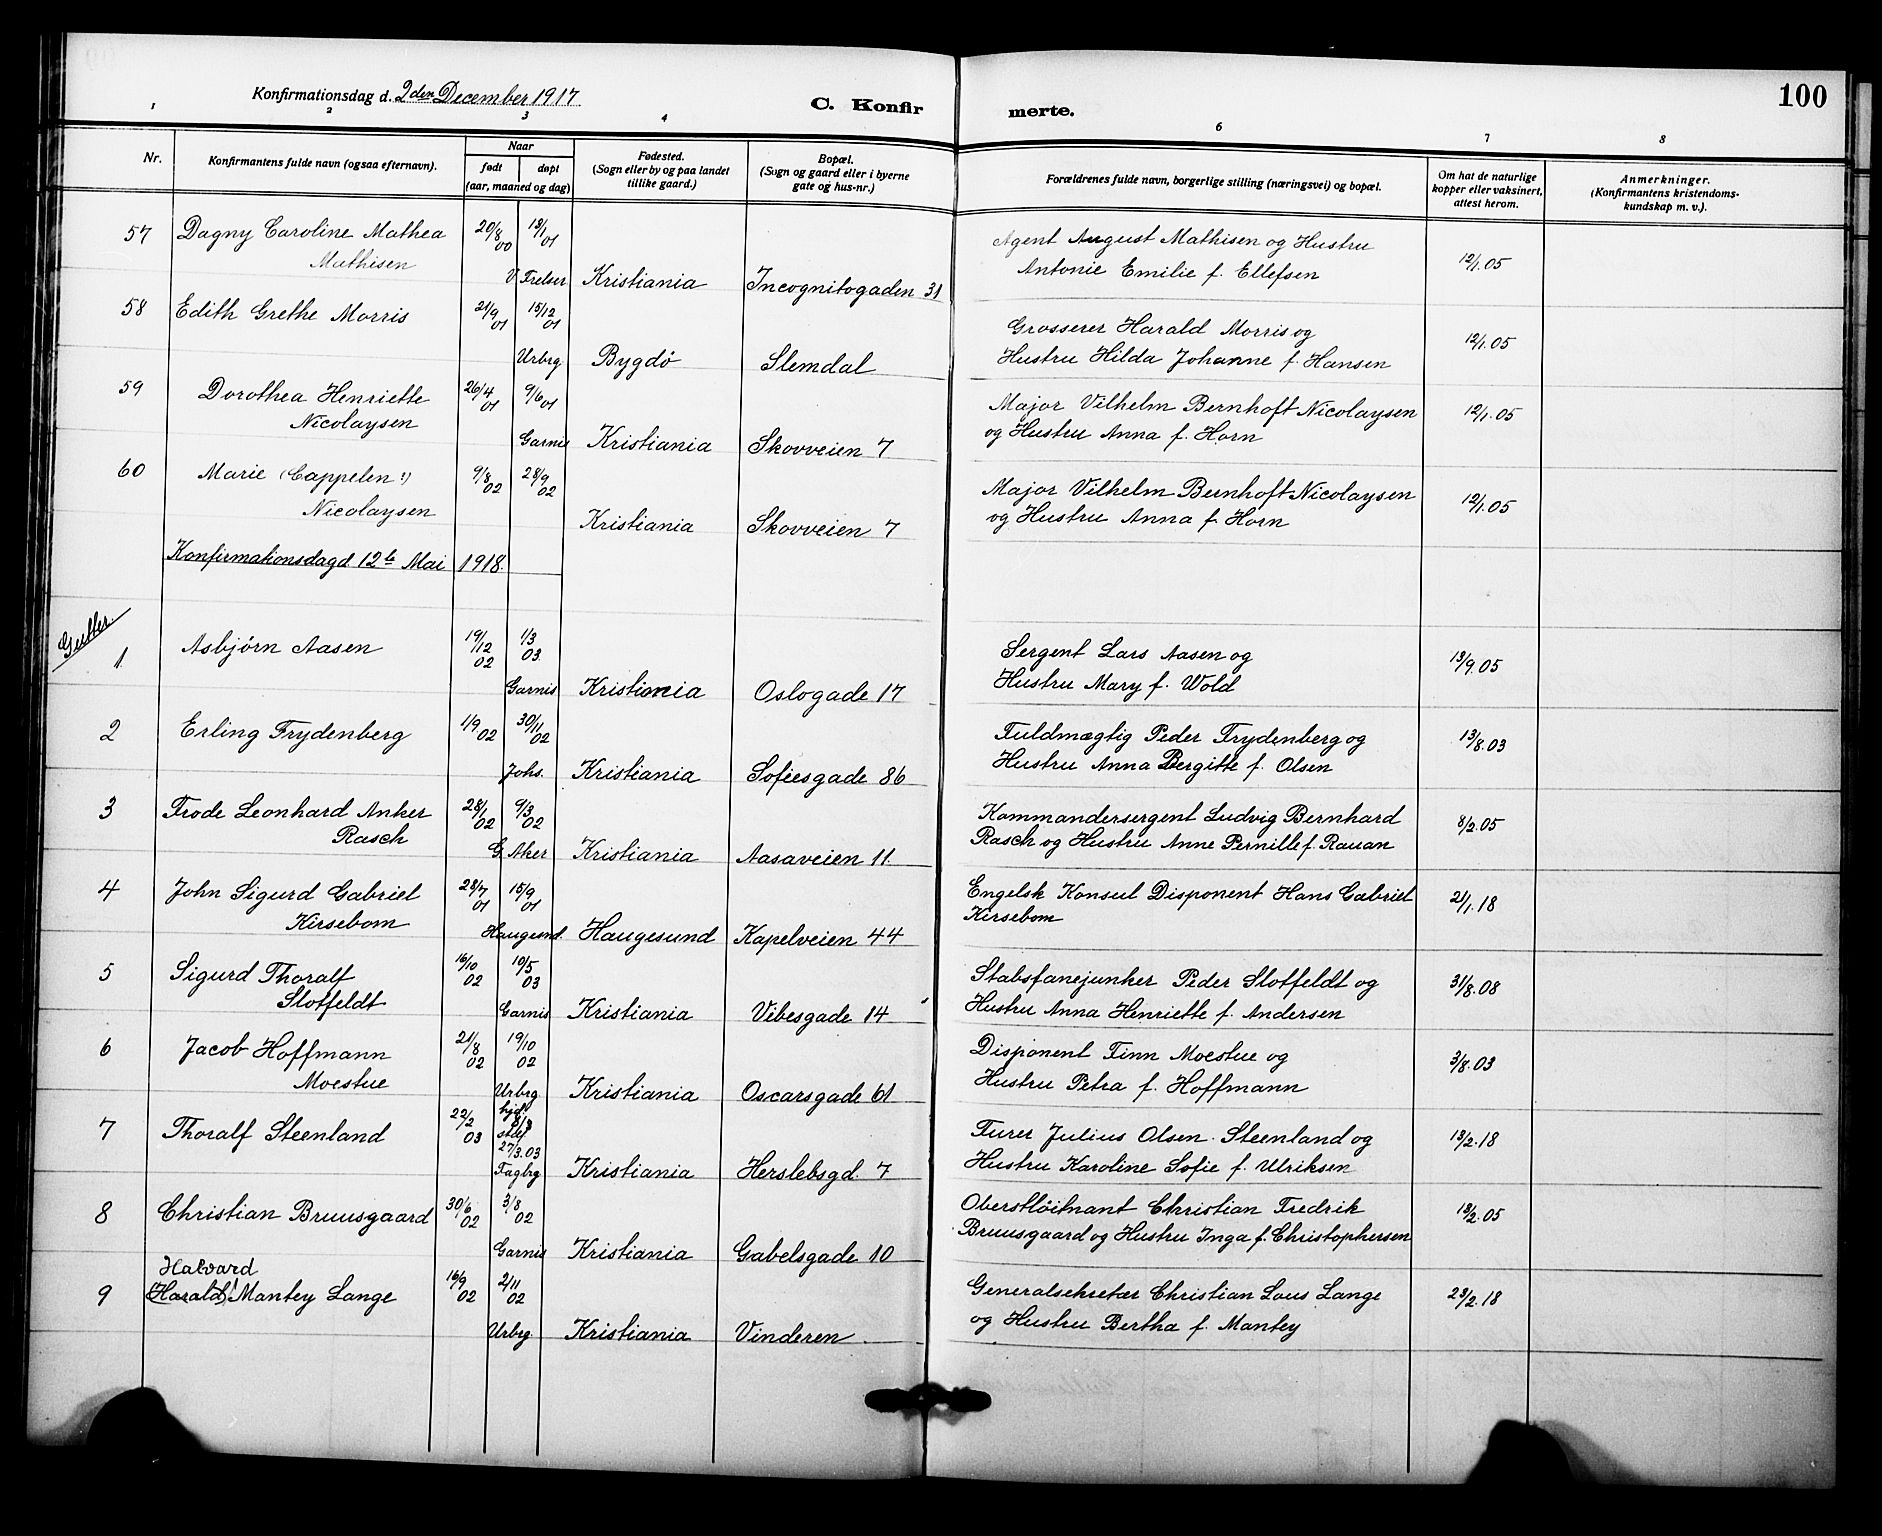 100
Konfirmationsdag d. 2den December 1917
C. Konfir merte.
1 2 3 4 6 7 8
Nr.
Konfirmantens fulde navn (ogsaa efternavn).
Naar
født døpt
(aar, maaned og dag)
Fødested.
(Sogn eller by og paa landet
tillike gaard.)
Bopæl.
(Sogn og gaard eller i byerne
gate og hus-nr.)
Forældrenes fulde navn, borgerlige stilling (næringsvei) og bopæl.
Om hat de naturlige
kopper eller vaksinert,
attest herom.
Anmerkninger.
(Konfirmantens kristendoms-
kundskap m. v.).
57 Dagny Caroline Mathea 20/8 00 13/1 01 Agent August Mathisen og Hustru 12/1.05
Mathisen V Frelser Kristiania Incognitogaden 31 Antonie Emilie f. Ellefsen
58 Edith Grethe Morris 21/9 01 15/12 01 Grosserer Harald Morris og 12/1.05
Urbrg Bygdø Slemdal Hustru Hilda Johanne f. Hansen
59 Dorothea Henriette 26/4 01 9/6 01 Major Vilhelm Bernhoft Nicolaysen 12/1.05
Nicolaysen Garnis Kristiania Skovveien 7 og Hustru Anna f. Horn
60 Marie (Cappelen !) 9/8 02 28/9 02 Major Vilhelm Bernhoft Nicolaysen 12/1.05
Nicolaysen Kristiania Skovveien 7 og Hustru Anna f. Horn
Konfirmationsdag d 12te Mai 1918.
Gutter.
1 Asbjørn Aasen 19/12 02 1/3 03. Sergent Lars Aasen og 13/9.05
Garnis Kristiania Oslogade 17 Hustru Mary f. Wold
2 Erling Frydenberg 1/9 02 30/11 02 Fuldmægtig Peder Frydenberg og 13/8.03
Johs. Kristiania Sofiesgade 86 Hustru Anna Bergitte f. Olsen
3 Frode Leonhard Anker 28/1 02 9/3 02 Kommandersergent Ludvig Bernhard 8/2.05
Rasch G. Aker Kristiania Aasaveien 11 Rasch og Hustru Anne Pernille f. Rauan
4 John Sigurd Gabriel 28/7 01 15/9 01 Engelsk Konsul Disponent Hans Gabriel 21/1.18
Kirsebom Haugesund. Haugesund Kapelveien 44 Kirsebom
5 Sigurd Thoralf 16/10 02 10/5 03 Stabsfanejunker Peder Slotfeldt og 31/8.08
Slotfeldt Garnis Kristiania Vibesgade 14 Hustru Anna Henriette f. Andersen
6 Jacob Hoffmann 21/8 02 19/10 02 Disponent Finn Moestue og 3/8.03
Moestue Urbrg Kristiania Oscarsgade 61 Hustru Petra f. Hoffmann
7 Thoralf Steenland 22/2 03 hjd. 8/3 stdf 27/3.03 Furer Julius Olsen Steenland og 13/2.18
Fagbrg Kristiania Herslebsgd. 7 Hustru Karoline Sofie f. Ulriksen
8 Christian Bruusgaard 30/6 02 3/8 02 Oberstløitnant Christian Fredrik 13/2.05
Garnis Kristiania Gabelsgade 10 Bruusgaard og Hustru Inga f. Christophersen
Halvard
9 (Harald!) Mantey Lange 16/9 02 2/11 02 Generalsekretær Christian Lous Lange 23/2.18
Urbrg. Kristiania Vinderen og Hustru Bertha f. Mantey